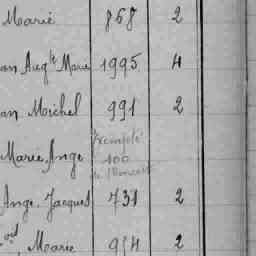 Marie 868 2
an Aug^te Marie 1995 4
an Michel 991 2
Exempté
Marie, Ange 100
Ange, Jacques 731 2
Marie 914 2